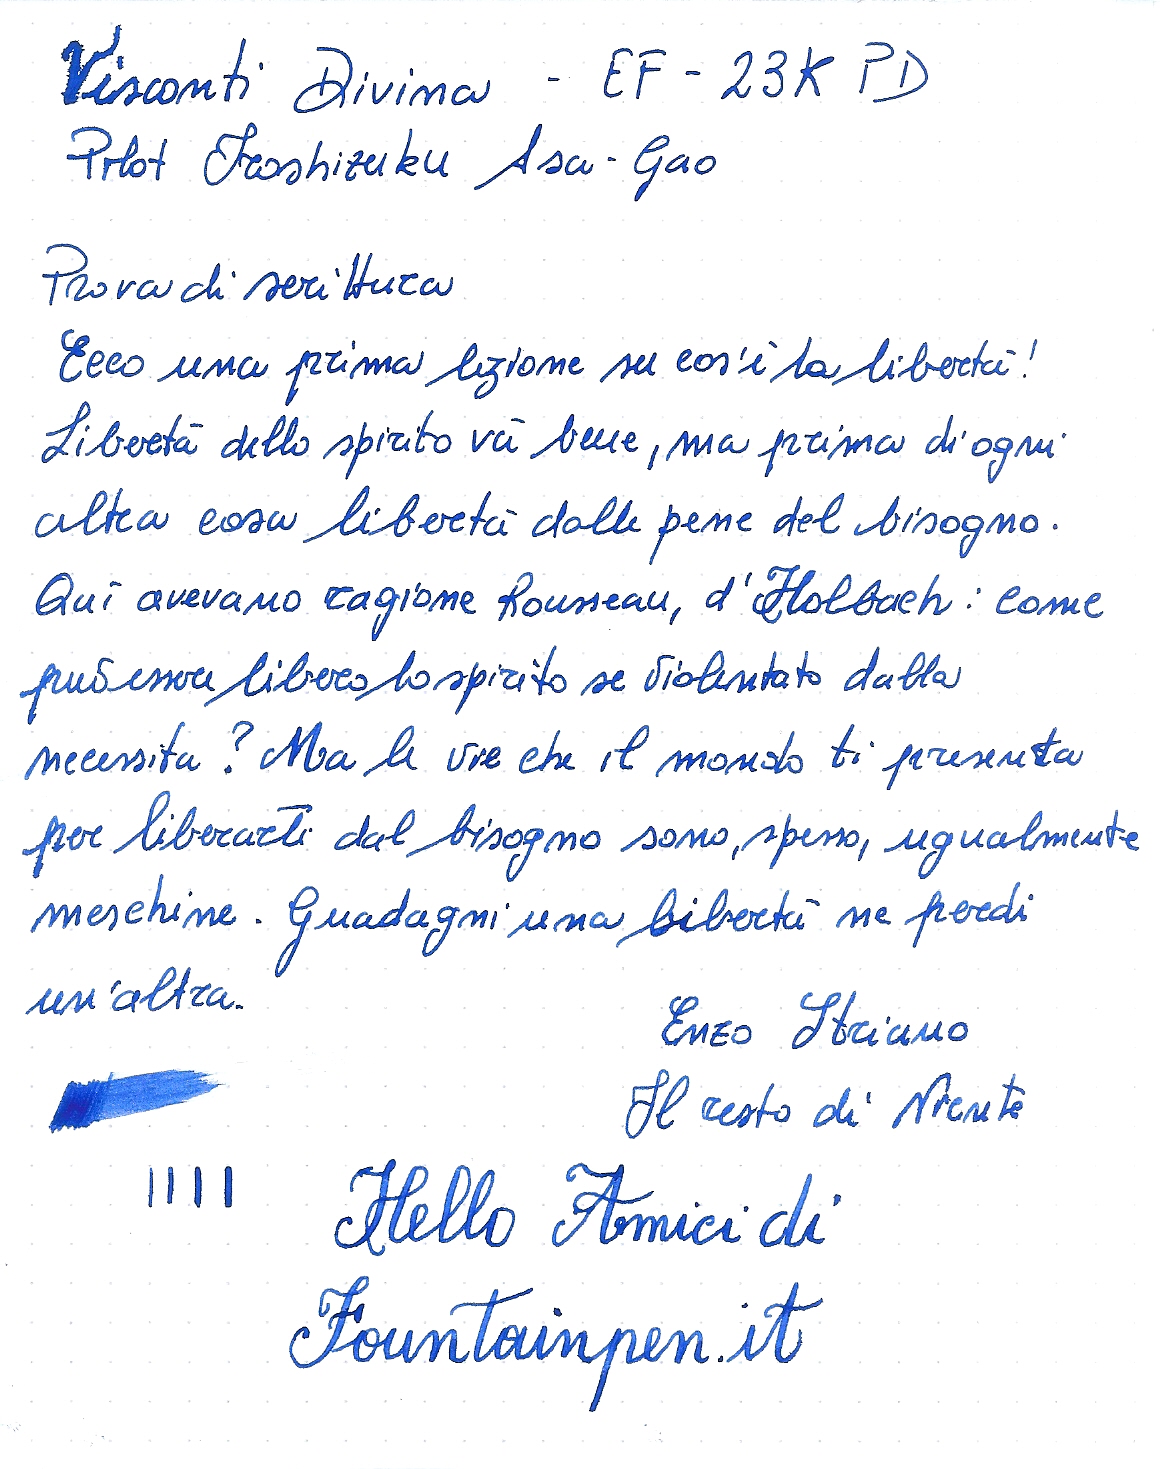 Visconti Divina - EF - 23K PD
Pilot Iroshizuku Asa-Gao
Prova di scrittura
Ecco una prima lezione su cos'è la libertà!
Libertà dello spirito và bene, ma prima di ogni
altra cosa libertà dalle pene del bisogno.
Qui avevano ragione Rousseau, d'Holbach: come
può essere libero lo spirito se violentato dalla
necessita? Ma le vie che il mondo ti presenta
per liberarti dal bisogno sono, spesso, ugualmente
meschine. Guadagni una libertà ne perdi
un'altra.
Enzo Striano
Il resto di Niente
Hello Amici di
Fountainpen.it